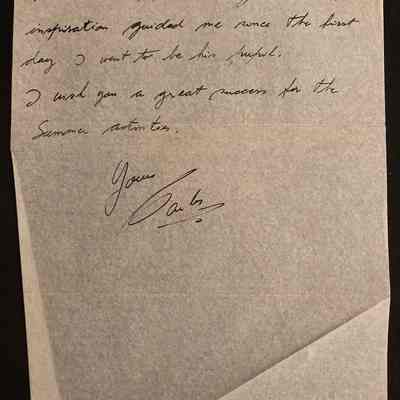 inspiration guided me since the first
day I went to be his pupil.
I wish you a great success for the
Summer activities.
Yours